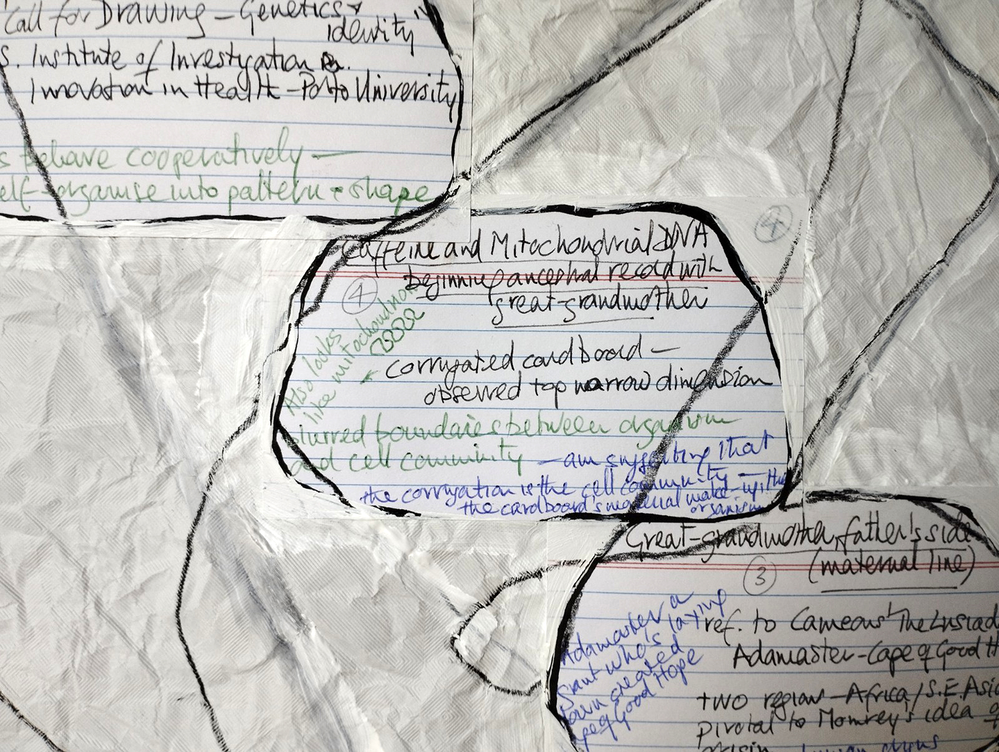 Call for Drawing – Genetics &
identity
S. Institute of Investigation &
Innovation in Health – Porto University
s behave cooperatively –
elf-organise into pattern + shape
4
Caffeine and Mitochondrial DNA
beginning ancestral record with
great-grandmother
4
Also looks
like mitochondrion
- corrugated cardboard –
observed top narrow dimension
blurred boundaries between organism
and cell community – am suggesting that
the corrugation is the cell community –
the cardboard's material make-up the
organism
Great-grandmother father's side
(maternal line)
3
Adamaster a
giant who's laying
down created
Cape of Good Hope
ref. to Cameons' The Lusiad
Adamaster – Cape of Good H
two regions – Africa/S.E. Asia
pivotal to Momrey's idea of
origin